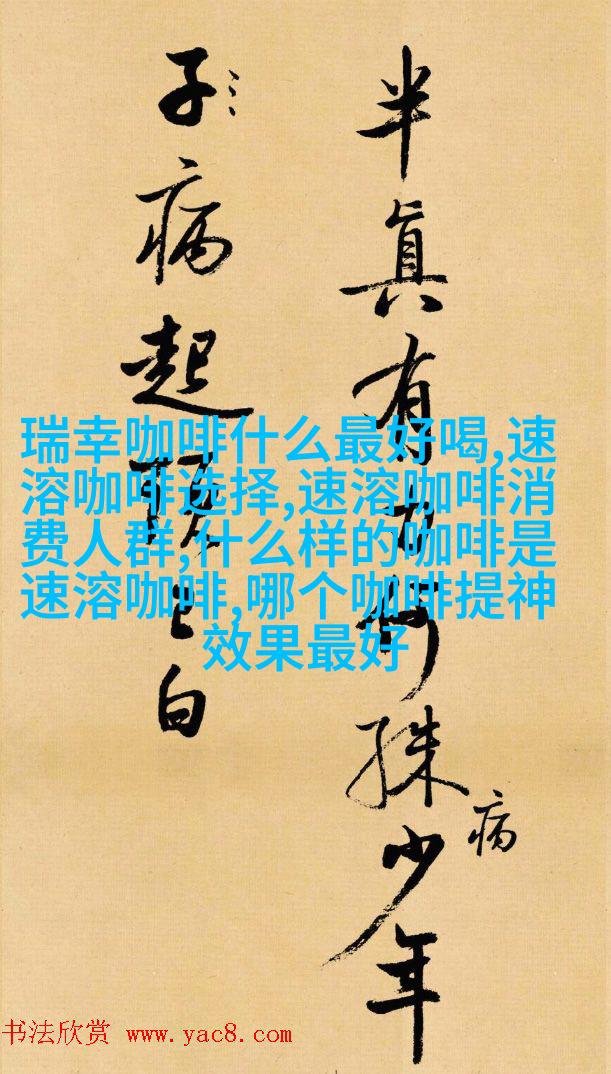 半眞有何殊少年
病
子病起上白
瑞幸咖啡什么最好喝,速
溶咖啡选择,速溶咖啡消
费人群,什么样的咖啡是
速溶咖啡,哪个咖啡提神
效果最好
书法欣赏 www.yac8.com